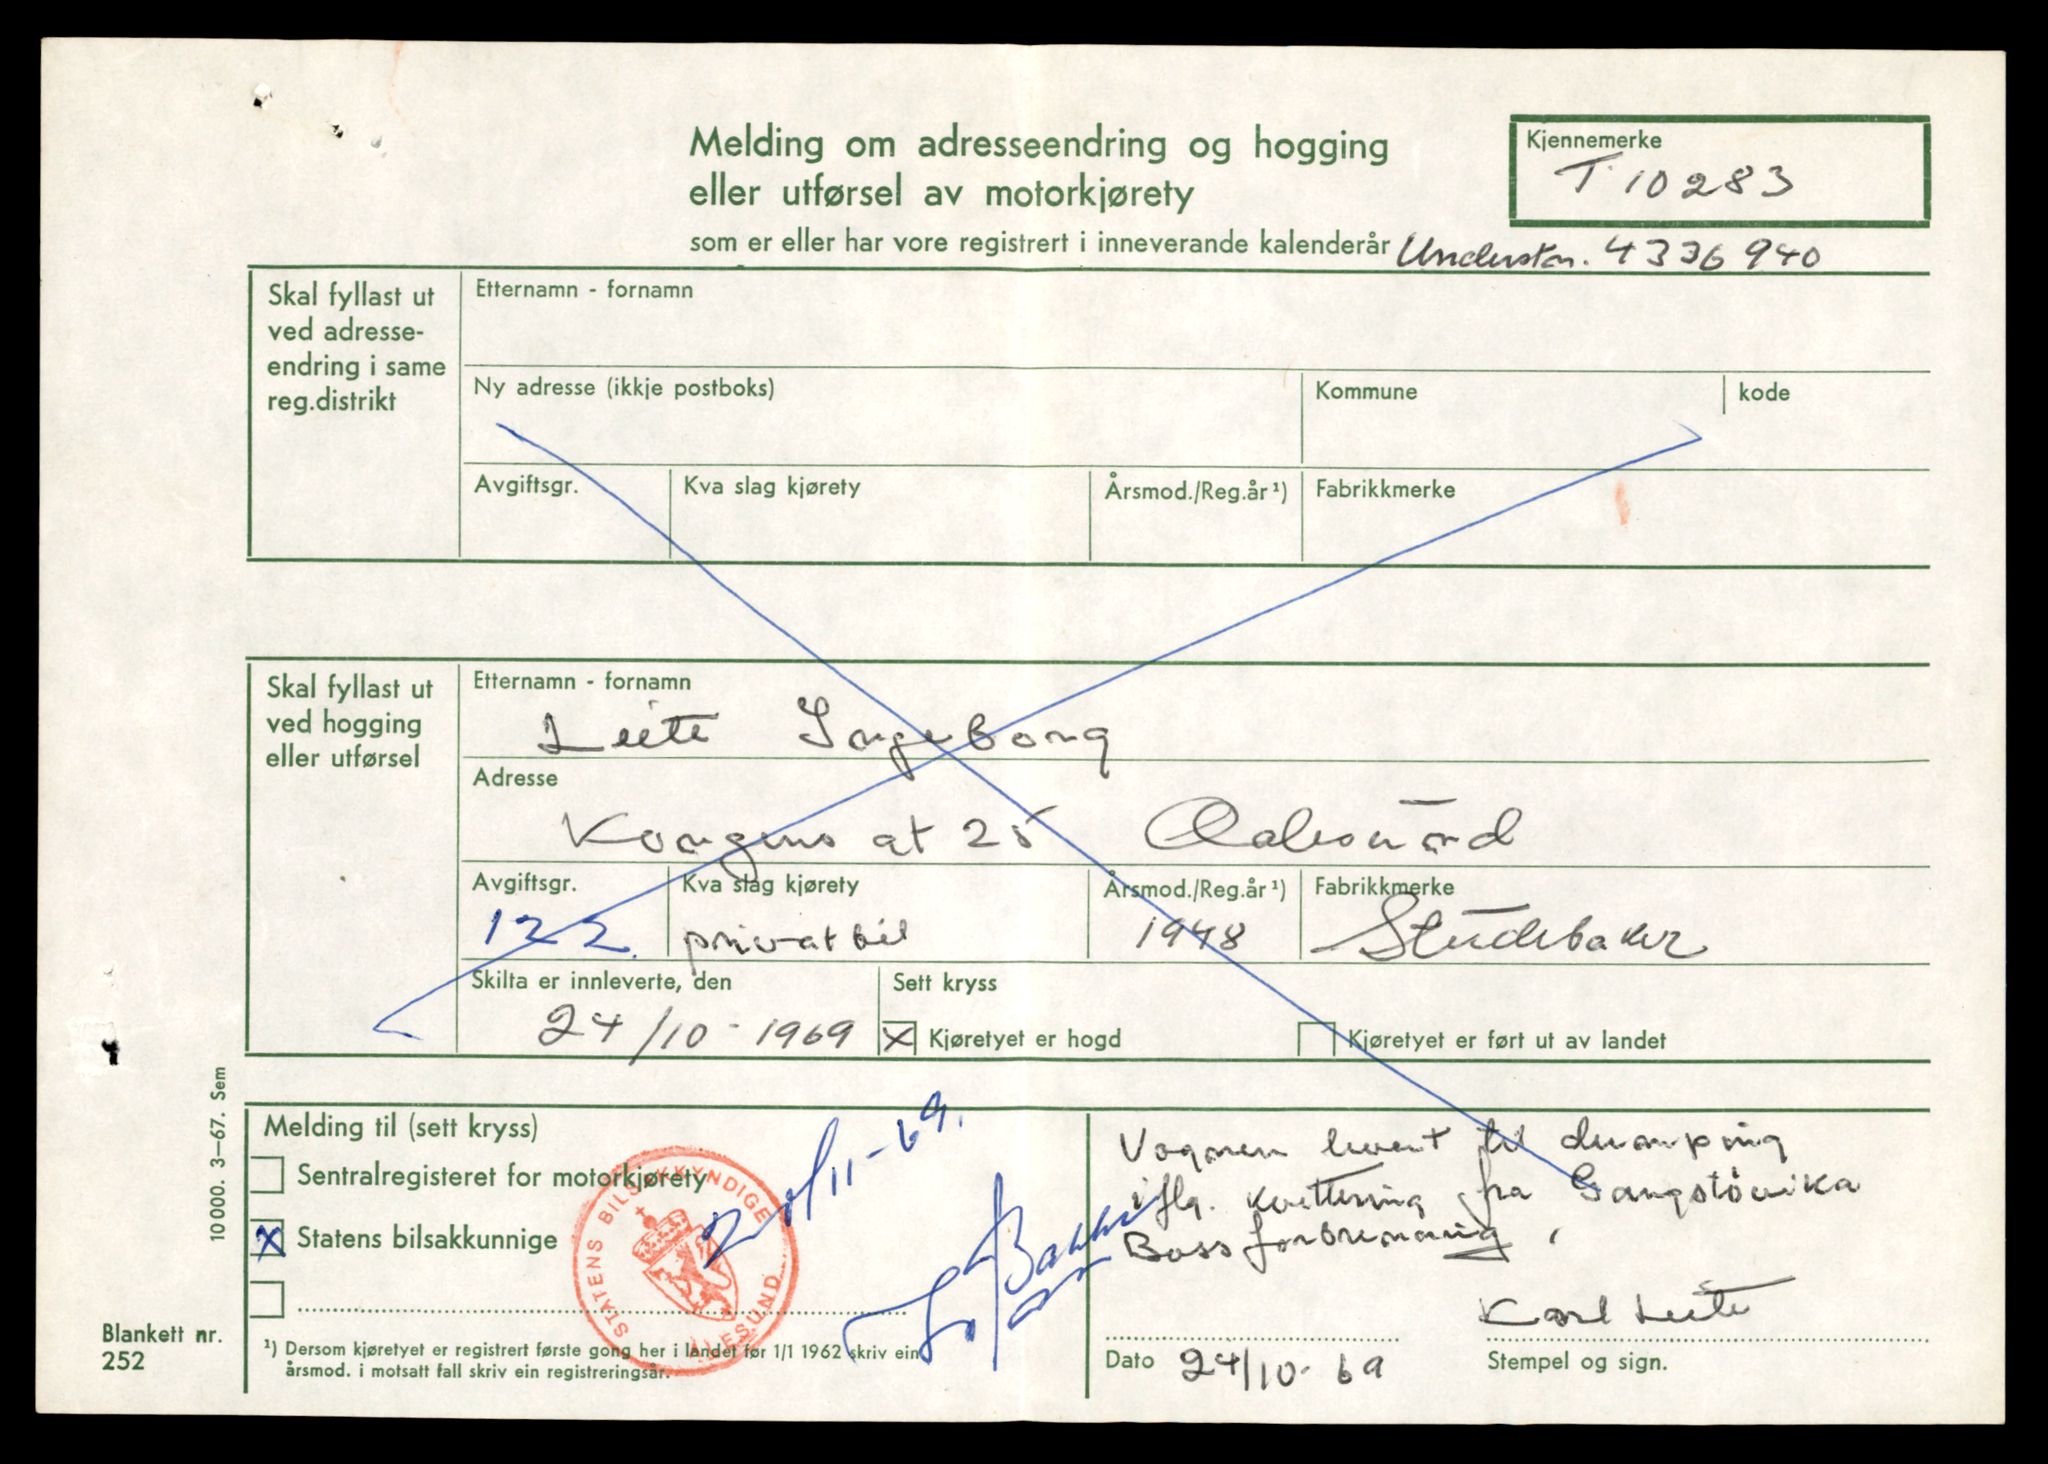 Melding om adresseendring og hogging
eller utførsel av motorkjørety
som er eller har vore registrert i inneverande kalenderår
Kjennemerke
T 10283
Understnr. 4336940
Skal fyllast ut
ved adresse-
endring i same
reg.distrikt
Etternamn - fornamn
Ny adresse (ikkje postboks)
Kommune
kode
Avgiftsgr.
Kva slag kjørety
Årsmod./Reg.år ¹)
Fabrikkmerke
Skal fyllast ut
ved hogging
eller utførsel
Etternamn - fornamn
Leite Ingeborg
Adresse
Kongens gt 25 Aalesund
Avgiftsgr.
122
Kva slag kjørety
privatbil
Årsmod./Reg.år ¹)
1948
Fabrikkmerke
Studebaker
Skilta er innleverte, den
24/10-1969
Sett kryss
x Kjøretyet er hogd
Kjøretyet er ført ut av landet
Melding til (sett kryss)
Sentralregisteret for motorkjørety
x Statens bilsakkunnige
STATENS BILSAKKYNDIGE
ÅLESUND
/11-69.
¹) Dersom kjøretyet er registrert første gong her i landet før 1/1 1962 skriv ein
årsmod. i motsatt fall skriv ein registreringsår.
Vognen levert til dumping
iflg. kvittering fra Gangstøvika
Bossforbrenning.
Karl Leite
Dato 24/10-69
Stempel og sign.
10 000. 3–67. Sem
Blankett nr.
252